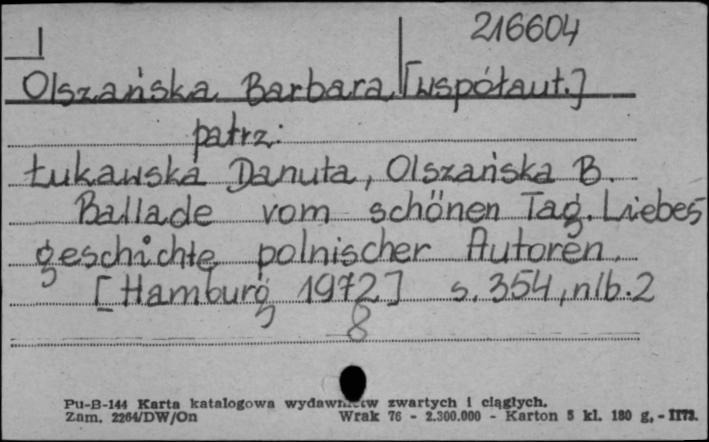 I 216604
Olszańska Barbara [współaut.]
patrz:
Łukawska Danuta, Olszańska B.
Ballade vom schönen Tag. Liebes
geschichte polnischer Autoren.
[Hamburg 1972] s. 354, nlb. 2
8
Pu-B-144 Karta katalogowa wydawnictw zwartych i ciągłych.
Zam. 2264/DW/On Wrak 76 - 2.300.000 - Karton 5 kl. 180 g. -